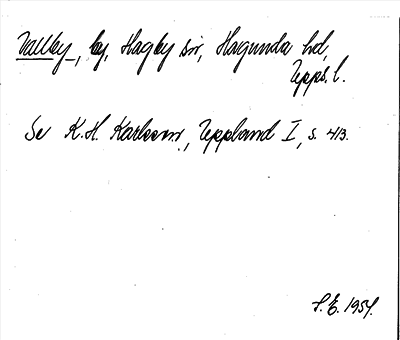 Vallby, by, Hagby sn, Hagunda hd,
Upps. l.
Se K.H. Karlsson, Uppland I, s. 413.
S.E. 1954.